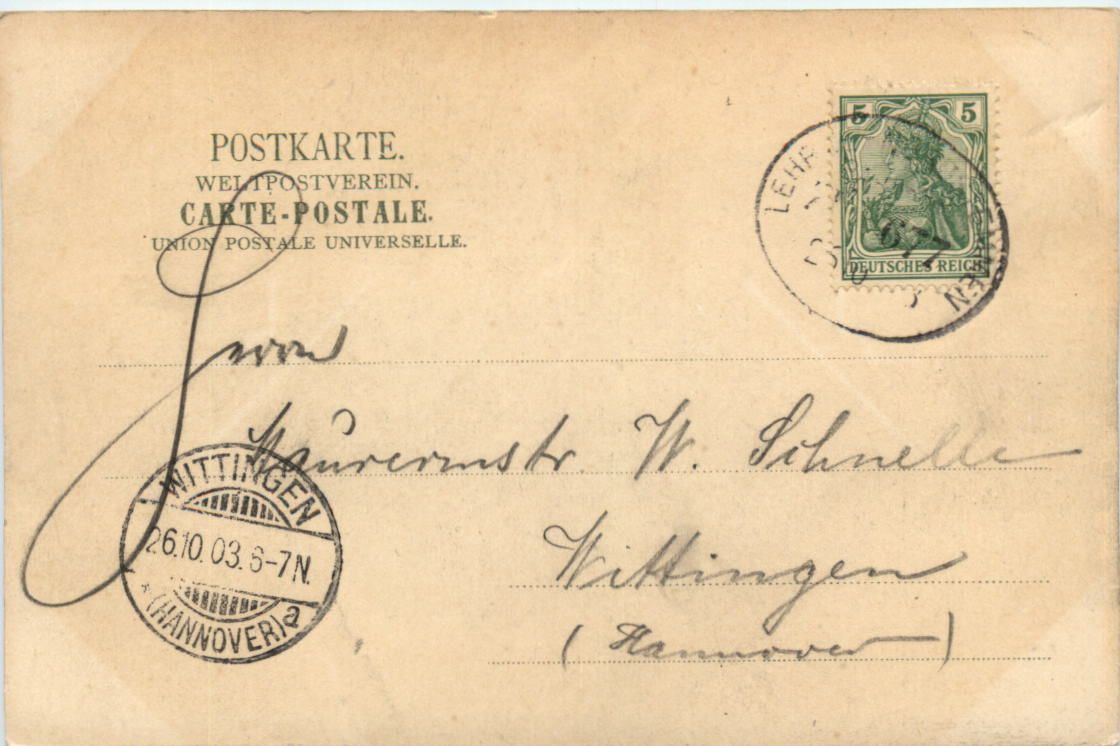 POSTKARTE.
WELTPOSTVEREIN.
CARTE-POSTALE.
UNION POSTALE UNIVERSELLE.
5 5
DEUTSCHES REICH
677
Herrn
Maurermstr. W. Schnelle
Wittingen
(Hannover)
WITTINGEN
26.10.03. 6-7N.
* (HANNOVER) a